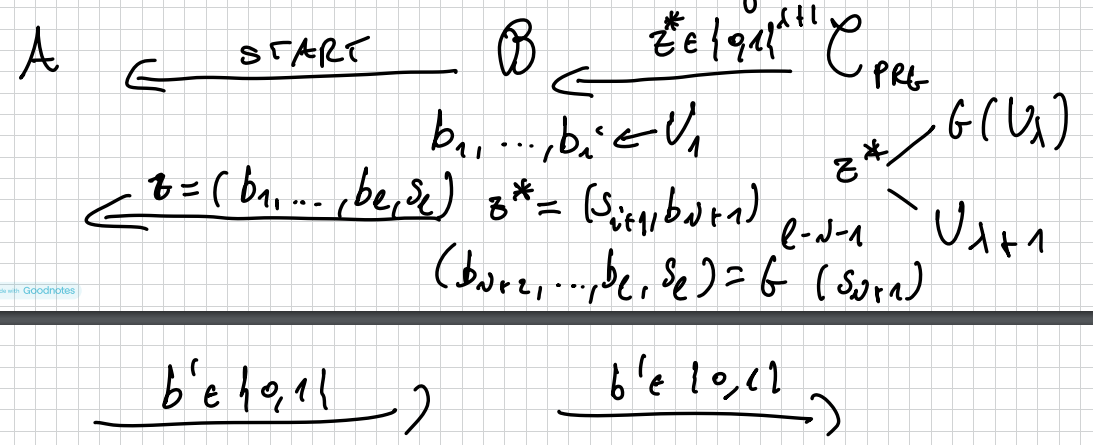 A START B z* ∈ {0,1}^{λ+1} C_PRG
b_1, ..., b_i ← U_1 z* G(U_λ)
z = (b_1, ..., b_ℓ, s_ℓ) z* = (s_{i+1}, b_{i+1}) U_{λ+1}
(b_{i+2}, ..., b_ℓ, s_ℓ) = G^{ℓ-i-1}(s_{i+1})
de with Goodnotes
b' ∈ {0,1} b' ∈ {0,1}